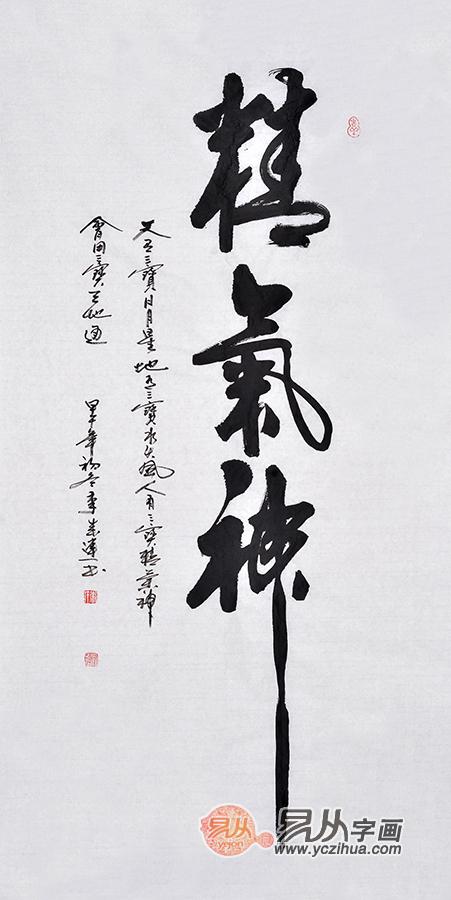 精氣神
天有三寶日月星地有三寶水火風人有三寶精氣神
會用三寶天地通
甲午年初冬李成連書
易从字画
www.yczihua.com
易从
yojon